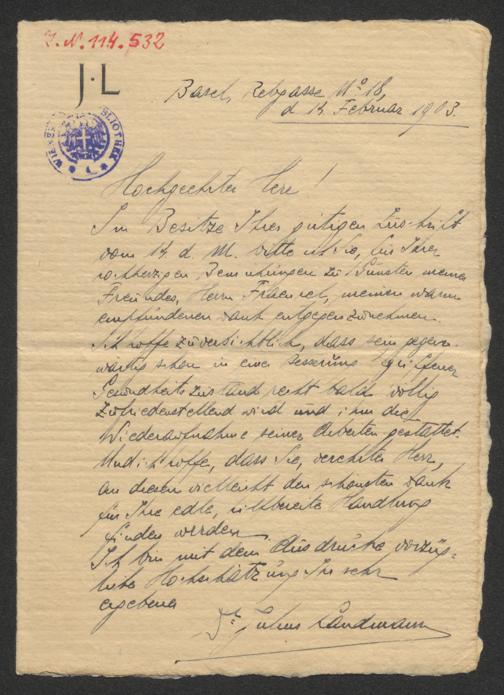 J.N. 114.532
J·L
WIENER BIBLIOTHEK
Basel, Rebgasse No 18,
d. 15. Februar 1903.
Hochgeehrter Herr!
Im Besitze Ihrer gütigen Zuschrift
vom 14. d. M. bitte ich Sie, für Ihre
Bemühungen zu Gunsten meines
Freundes, Herrn Fraenkel, meinen warm
empfundenen Dank entgegenzunehmen.
Ich hoffe zuversichtlich, dass sein gegen-
wärtig schon in einer Besserung begriffener
Gesundheitszustand recht bald völlig
zufriedenstellend wird und ihm die
Wiederaufnahme seiner Arbeiten gestattet.
Und ich hoffe, dass Sie, verehrter Herr,
an diesen vielleicht den schönsten Dank
für Ihre edle, hilfbereite Handlung
finden werden.
Ich bin mit dem Ausdrucke vorzüg-
licher Hochschätzung Ihr sehr
ergebener
Dr. Julius Landmann